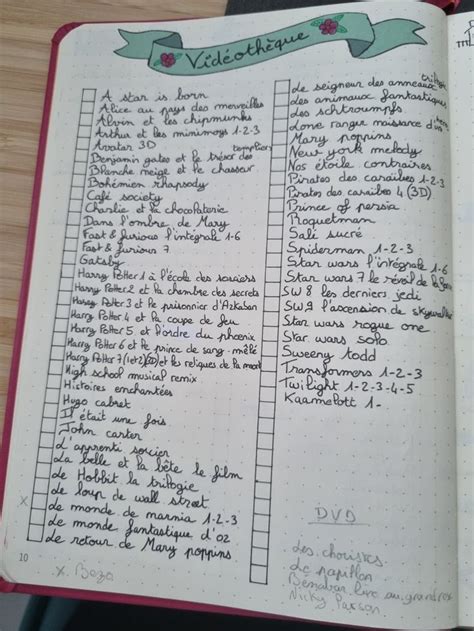 Vidéothèque
A star is born
Alice au pays des merveilles
Alvin et les chipmunks
Arthur et les minimoys 1-2-3
Avatar 3D
Benjamin gates et le trésor des templiers
Blanche neige et le chasseur
Bohémien rhapsody
Café society
Charlie et la chocolaterie
Dans l'ombre de Mary
Fast & furious l'intégrale 1-6
Fast & furious 7
Gatsby
Harry Potter 1 à l'école des sorciers
Harry Potter 2 et la chambre des secrets
Harry Potter 3 et le prisonnier d'Azkaban
Harry Potter 4 et la coupe de feu
Harry Potter 5 et l'ordre du phœnix
Harry Potter 6 et le prince de sang-mêlé
Harry Potter 7 (1et2) et les reliques de la mort
High school musical remix
Histoires enchantées
Hugo cabret
Il était une fois
John carter
L'apprenti sorcier
La belle et la bête le film
Le Hobbit la trilogie
Le loup de wall street
X
Le monde de narnia 1-2-3
Le monde fantastique d'oz
Le retour de Mary poppins
10
x. Bozo
Le seigneur des anneaux trilogie
Les animaux fantastiques
Les schtroumpfs
Lone ranger naissance d'un héros
Mary poppins
New york melody
Nos étoile contraires
Pirates des caraïbes 1-2-3
Pirates des caraïbes 4 (3D)
Prince of persia
Roquetman
Salé sucré
Spiderman 1-2-3
Star wars l'intégrale 1-6
Star wars 7 le réveil de la force
SW 8 les derniers jedi
SW 9 l'ascension de skywalker
Star wars rogue one
Star wars solo
Sweeny todd
Transformers 1-2-3
Twilight 1-2-3-4-5
Kaamelott 1-
DVD
Les choristes
Le papillon
Bénabar live au grand rex
Nicky Paxson